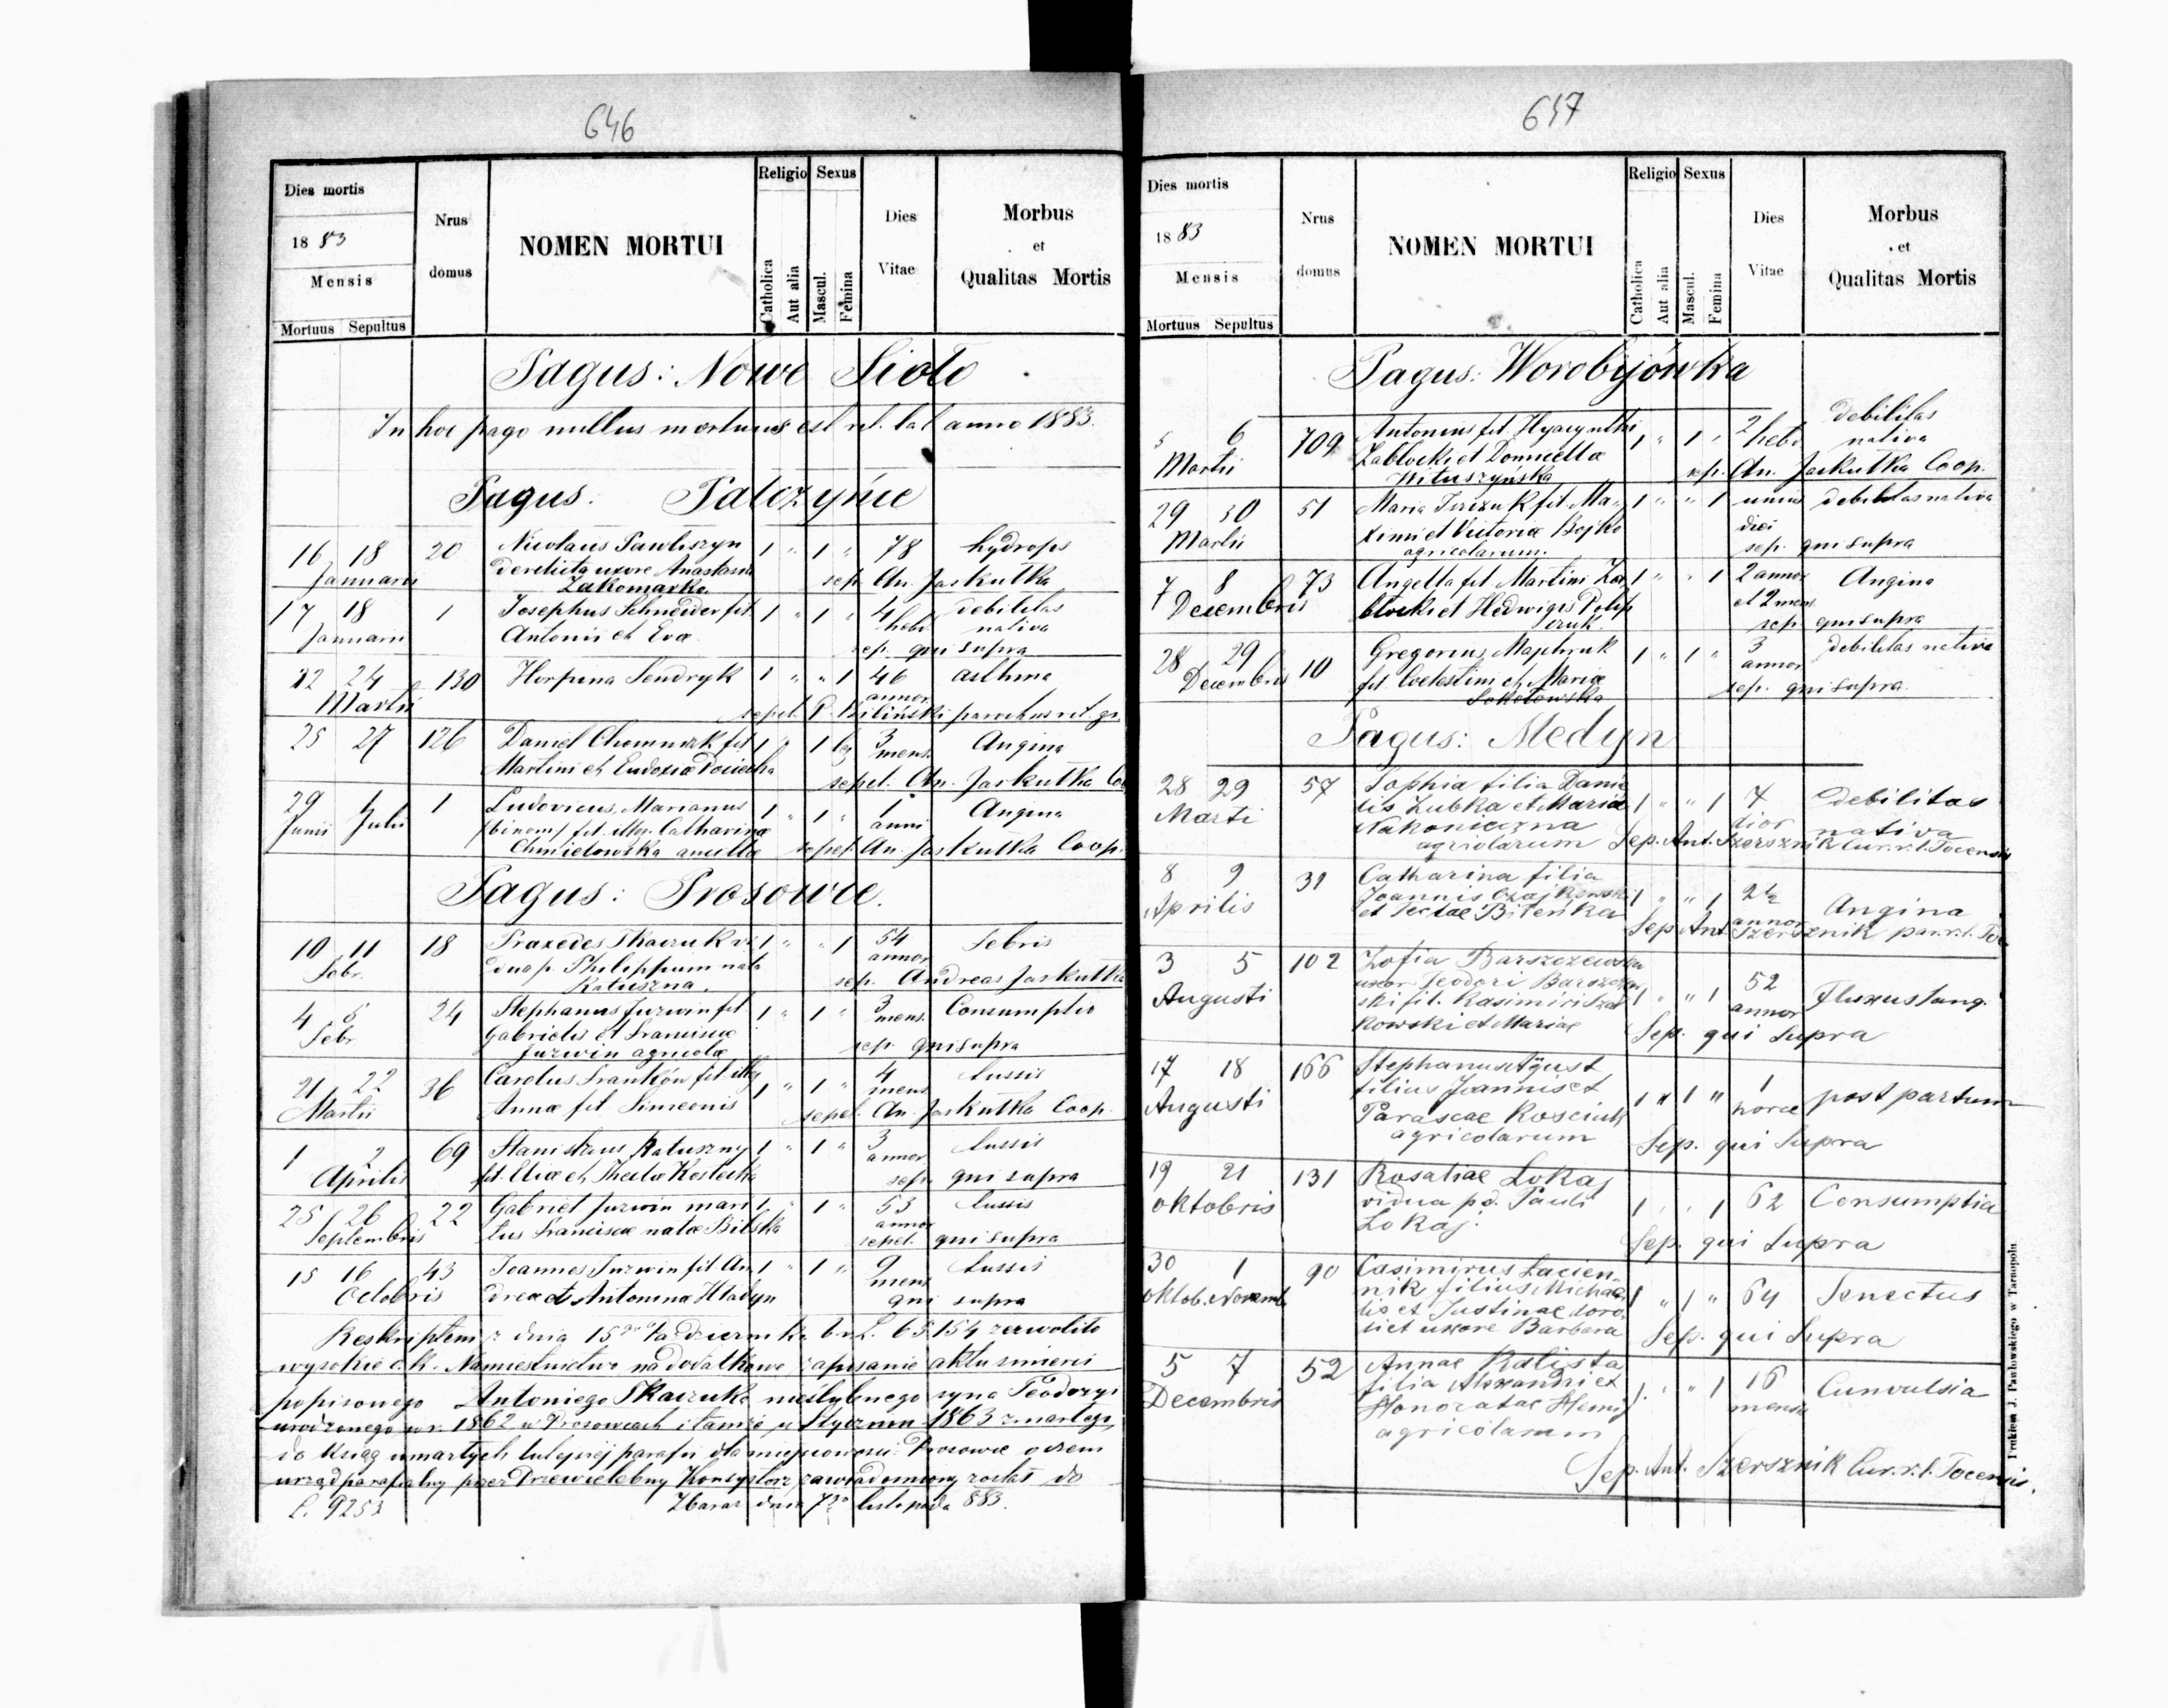 646
Dies mortis
1883
Mensis
Mortuus Sepultus
Nrus
domus
NOMEN MORTUI
Religio
Catholica
Aut alia
Sexus
Mascul.
Femina
Dies
Vitae
Morbus
et
Qualitas Mortis
Pagus: Nowe Sioło
In hoc pago nullus mortuus est rit. lat anno 1883.
Pagus: Palczyńce
16 18 20 Nicolaus Pawliszyn 1 " 1 " 78 hydrops
Januarii derelicta uxore Anastasia sep. An. Jaskułka
Zakomarka
17 18 1 Josephus Schneider fil. 1 " 1 " 4 debilitas
Januarii Antonii et Evae hebd. nativa
sep. qui supra
22 24 130 Horpina Sendryk 1 " " 1 46 asthma
Martii annor.
sepel. P. Biliński parochus rit. gr.
25 27 126 Daniel Chomniak fil 1 " 1 3 Angina
Martini et Eudoxiae Pociecha mens.
sepel. An. Jaskułka Coo
29 1 1 Ludovicus, Marianus 1 " 1 " 1 Angina
Junii Julii /binom/ fil. illeg. Catharinae anni
Chmielowska ancillae sepel. An. Jaskułka Coop.
Pagus: Prosowce.
10 11 18 Praxedes Tkaczuk vi 1 " " 1 54 Febris
Febr. dua p. Philippum nata annor.
Kałuszna. sep. Andreas Jaskułka
4 5 24 Stephanus Jurwin fil. 1 " 1 " 3 Consumptio
Febr Gabrielis et Franciscae mens.
Jurwin agricolae sep. qui supra
21 22 36 Carolus Franków fil. illeg 1 " 1 " 4 tussis
Martii Annae fil. Simeonis mens
sepel. An. Jaskułka Coop.
1 2 69 Stanislaus Kałuszny 1 " 1 " 3 tussis
Aprilis fil. Eliae et Theclae Kostecka annor
sep. qui supra
25 26 22 Gabriel Jurwin mari 1 " 1 " 53 tussis
Septembris tus Franciscae natae Bilska annor
sepel. qui supra
15 16 43 Joannes Jurwin fil. An 1 " 1 " 9 tussis
Octobris dreae et Antonina Hładyn mens
qui supra
Reskriptem z dnia 15go Października b.r. L. 65154 zezwoliło
wysokie c.k. Namiestnictwo na dodatkowe zapisanie aktu śmierci
popisowego Antoniego Tkaczuka nieślubnego syna Teodozyi
urodzonego w r. 1862 w Prosowcach i tamże w Styczniu 1863 zmarłego,
do ksiąg umarłych tutejszej parafii dla miejscowości: Prosowce o czem
urząd parafialny przez Przewielebny Konsystorz zawiadomiony został do
L. 9253 Zbaraż dnia 7go listopada 883.
647
Dies mortis
1883
Mensis
Mortuus Sepultus
Nrus
domus
NOMEN MORTUI
Religio
Catholica
Aut alia
Sexus
Mascul.
Femina
Dies
Vitae
Morbus
et
Qualitas Mortis
Pagus: Worobijówka
5 6 709 Antonius fil. Hyacynthi 1 " 1 " 2 debilitas
Martii Zabłocki et Domicellae hebd nativa
Wituszyńska sep. An. Jaskułka Coop.
29 30 51 Maria fil. Ma- 1 " " 1 unius debilitas nativa
Martii ximi et Victoriae Bojko diei
agricolarum. sep. qui supra
7 8 73 Angella fil. Martini Za 1 " " 1 2 annor Angina
Decembris błocki et Hedwigis et 2 mens
sep. qui supra
28 29 10 Gregorius Majchruk 1 " 1 " 3 debilitas nativa
Decembris fil. Coelestini et Mariae annor
Sokołowska sep. qui supra.
Pagus: Medyn
28 29 57 Sophia filia Danie 1 " " 1 7 debilitas
Marti lis Zubka et Mariae dier nativa
Nakonieczna
agricolarum Sep. Ant. Szersznik Cur. r. l. Tocensis
8 9 31 Catharina filia 1 " " 1 2½ Angina
Aprilis Joannis Czajkowski annor
et Teclae Bileńka Sep. Ant. Szersznik par. r. l. Toc
3 5 102 Zofia Barszczewska 1 " " 1 52 Fluxus sang.
Augusti uxor Teodori Barszczew annor
ski fil. Kasimiri
kowski et Mariae Sep. qui supra
17 18 166 Stephanus August 1 " 1 " 1 post partum
Augusti filius Joannis et horae
Parascae Kosciuk
agricolarum Sep. qui supra
19 21 131 Rosaliae Lokaj 1 " " 1 62 Consumptia
oktobris vidua p.d. Pauli
Lokaj. Sep. qui supra
30 1 90 Casimirus Łacien- 1 " 1 " 64 Senectus
oktob. Novemb. nik filius Michae
lis et Justinae
et uxore Barbara Sep. qui supra
5 7 52 Annae Kalista 1 " " 1 16 Cunvulsia
Decembris filia Alexandri et mensis
Honoratae
agricolarum
Sep. Ant. Szersznik Cur. r. l. Tocensis.
Drukiem J. Pawłowskiego w Tarnopolu